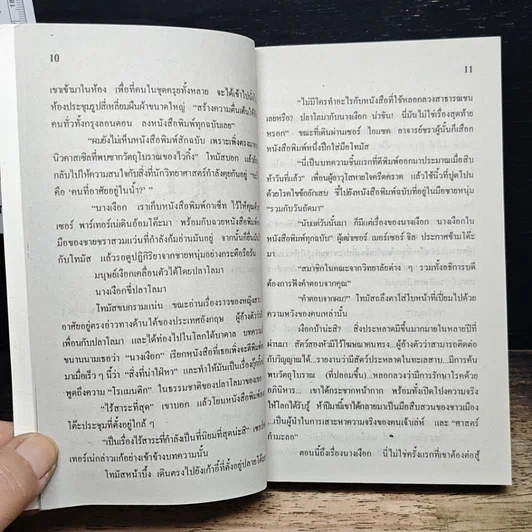 10
เขาเข้ามาในห้อง เพื่อที่คนในชุดครุยทั้งหลาย จะได้เข้าไปนั่งใน
ห้องประชุมรูปสี่เหลี่ยมผืนผ้าขนาดใหญ่ "สร้างความตื่นเต้นให้
คนทั่วทั้งกรุงลอนดอน ลงหนังสือพิมพ์ทุกฉบับเลย"
"ผมยังไม่เห็นหนังสือพิมพ์สักฉบับ เพราะเพิ่งตรงมาจาก
นิวคาสเซิลที่พบซากวัตถุโบราณของไวกิ้ง" โทมัสบอก แล้วถาม
กลับไปว่า "อะไรคือสิ่งที่นักวิทยาศาสตร์กำลังคุยกันอยู่
คือ 'คนที่อาศัยอยู่ในน้ำ?' "
"นางเงือก เราเก็บหนังสือพิมพ์กาเซ็ท ไว้ให้คุณ
เซอร์ พาร์เทอร์เน่เดินอ้อมโต๊ะมา พร้อมกับฉวยหนังสือพิมพ์
มือของชายชราสวมแว่นที่กำลังก้มอ่านมันอยู่ จากนั้นก็ยื่นมัน
กับโทมัส แล้วรอดูปฏิกิริยาจากชายหนุ่มอย่างกระตือรือร้น
มนุษย์เงือกเคลื่อนตัวได้โดยปลาโลมา
นางเงือกขี่ปลาโลมา
โทมัสขบกรามแน่น ขณะอ่านเรื่องราวของหญิงสาว
อาศัยอยู่ตรงอ่าวทางด้านใต้ของประเทศอังกฤษ ผู้อ้างตัวว่า
เพื่อนกับปลาโลมา และได้ท่องไปในโลกใต้บาดาล บทความ
ขนานนามเธอว่า "นางเงือก" เรียกหนังสือที่เธอเพิ่งจะตีพิมพ์
มาเมื่อเร็ว ๆ นี้ว่า "สิ่งที่น่าใฝ่หา" และทำให้มันเป็นเรื่องที่
พูดถึงความ "โรแมนติก" ในธรรมชาติของปลาโลมาของเธอ
"ไร้สาระที่สุด" เขาบอก แล้วโยนหนังสือพิมพ์ลง
โต๊ะประชุมที่ตั้งอยู่ใกล้ ๆ
"เป็นเรื่องไร้สาระที่กำลังเป็นที่นิยมที่สุดน่ะสิ" เซอร์
เทอร์เน่กล่าวแก้อย่างเข้าข้างบทความนั้น
โทมัสหน้าบึ้ง เดินตรงไปยังเก้าอี้ที่ตั้งอยู่ปลายโต๊ะ
11
"นี่ไม่มีใครทำอะไรกับหนังสือที่ใช้หลอกลวงสาธารณชน
เลยหรือ? ปลาโลมากับนางเงือก น่าขัน! นี่มันไม่ใช่เรื่องสุดท้าย
หรอก" ขณะที่เดินผ่านเซอร์ ไอแซค อาจารย์ชราผู้นั้นก็เลือก
หนังสือพิมพ์หนึ่งปึกใส่มือโทมัส
"นี่เป็นบทความชิ้นแรกที่ตีพิมพ์ออกมาประมาณเมื่อสิบ
ห้าวันที่แล้ว" เพื่อนผู้อาวุโสหายใจครืดคราด แล้วใช้นิ้วที่ปูดโปน
ด้วยโรคไขข้ออักเสบ ชี้ไปยังหนังสือพิมพ์ฉบับที่อยู่ในมือชายหนุ่ม
"รวมกับวันถัดมา"
"นับแต่วันนั้นมา ก็มีแต่เรื่องของนางเงือก นางเงือกใน
หนังสือพิมพ์ทุกฉบับ" ผู้เฒ่าเซอร์ เมอร์เซอร์ ชิล ประกาศข้ามโต๊ะ
มา
"สมาชิกในคณะจากวิทยาลัยต่าง ๆ รวมทั้งอธิการบดี
ต้องการฟังคำตอบจากคุณ"
"คำตอบจากผม?" โทมัสจ้องตาใสไปหน้าที่เปี่ยมไปด้วย
ความหวังของคนเหล่านั้น
เงือกบ้าน่ะสิ? สิ่งประหลาดมีขึ้นมากมายในหลายปีที่
ผ่านมา สัตว์สองหัวมีไว้โฆษณาคนทรง...ผู้อ้างตัวว่าสามารถติดต่อ
กับวิญญาณได้...รายงานว่ามีสัตว์ประหลาดในทะเลสาบ...มีการค้น
พบวัตถุโบราณ (ที่ปลอมขึ้น)...หลอกลวงว่ามีการรักษาโรคด้วย
อภินิหาร... เขาได้กระชากหน้ากาก พร้อมทั้งเปิดโปงความจริง
ให้โลกได้รับรู้ ห้าปีมานี้เขาได้กลายมาเป็นมือสืบสวนของชาวเมือง
...เป็นผู้นำในการเสาะหาความจริงของคนเจ้าเล่ห์ และ "ศาสตร์
กำมะลอ"
ตอนนี้ถึงเรื่องนางเงือก นี่ไม่ใช่ครั้งแรกที่เขาต้องต่อสู้